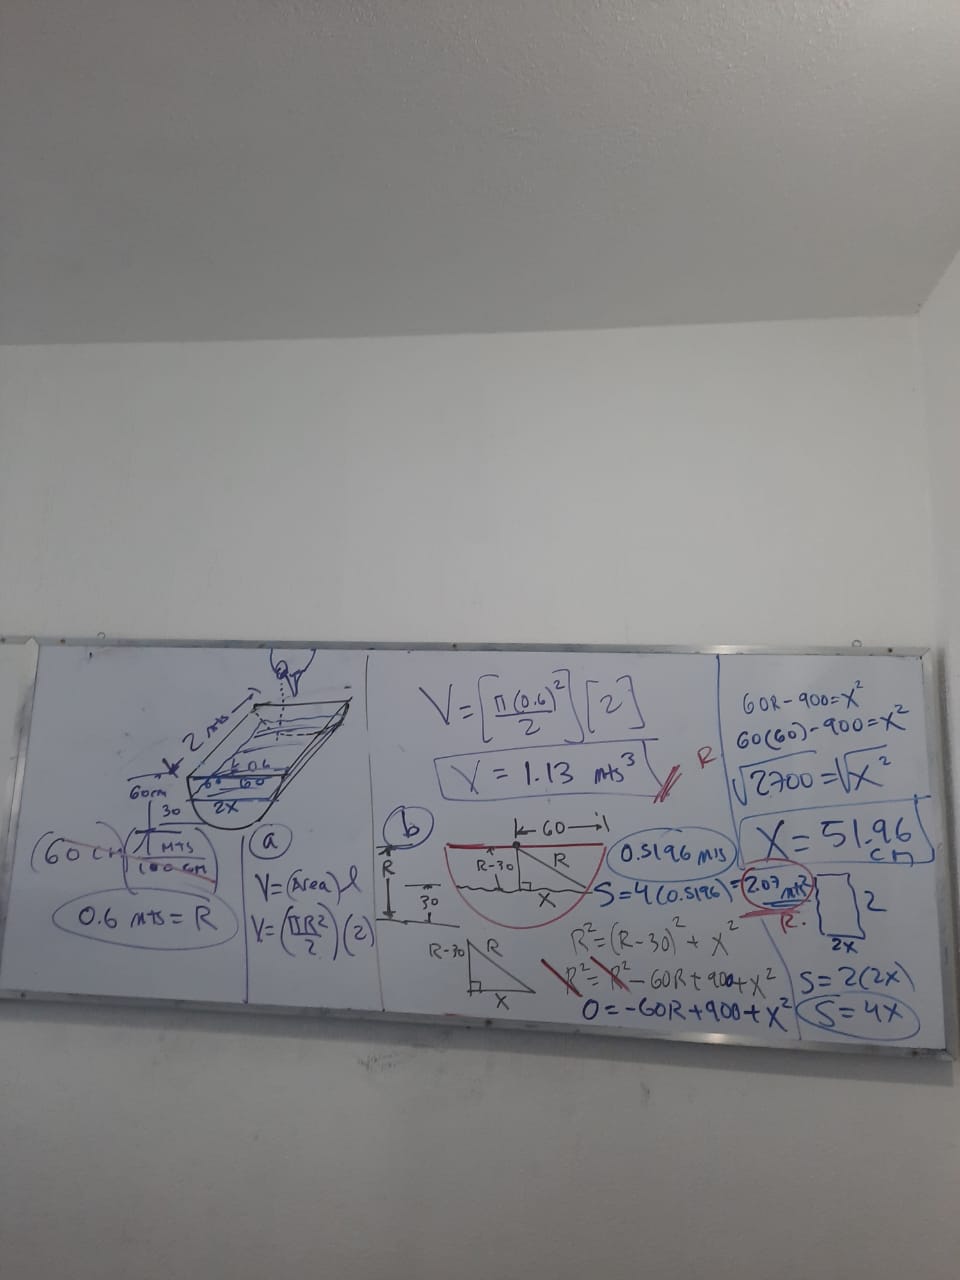 2 mts
0.6
60 60
60cm
30
2X
(60 cm)(1 mts / 100 cm)
0.6 mts = R
a
V=(Area) l
V=(πR²/2)(2)
V=[π(0.6)²/2][2]
V = 1.13 mts³
R
b
60
R
R-30
R
30
X
R-30
R
X
0.5196 mts
S=4(0.5196)=2.07 mts²
R.
R²=(R-30)²+X²
R²=R²-60R+900+X²
0=-60R+900+X²
60R-900=X²
60(60)-900=X²
√2700=√X²
X=51.96 cm
2
2x
S=2(2X)
S=4X